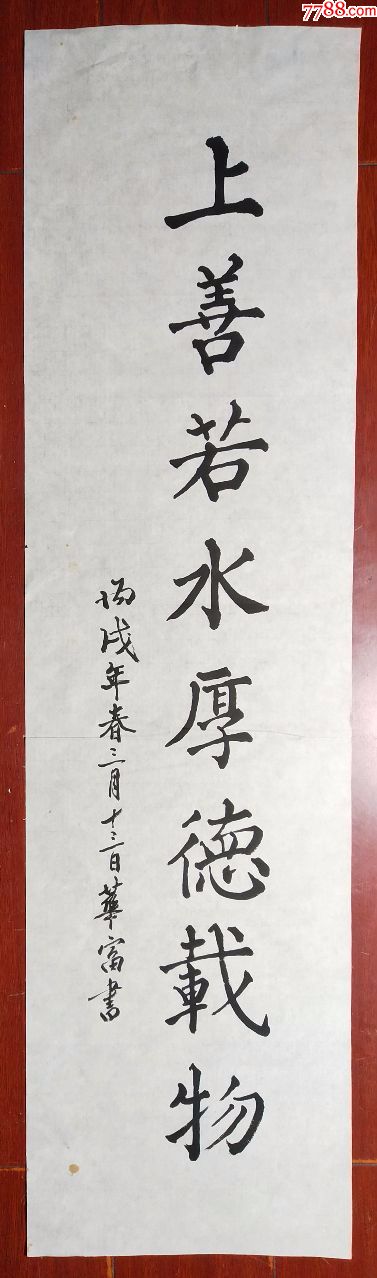 7788.com
上善若水厚德載物
戌年春三月十三日華富書